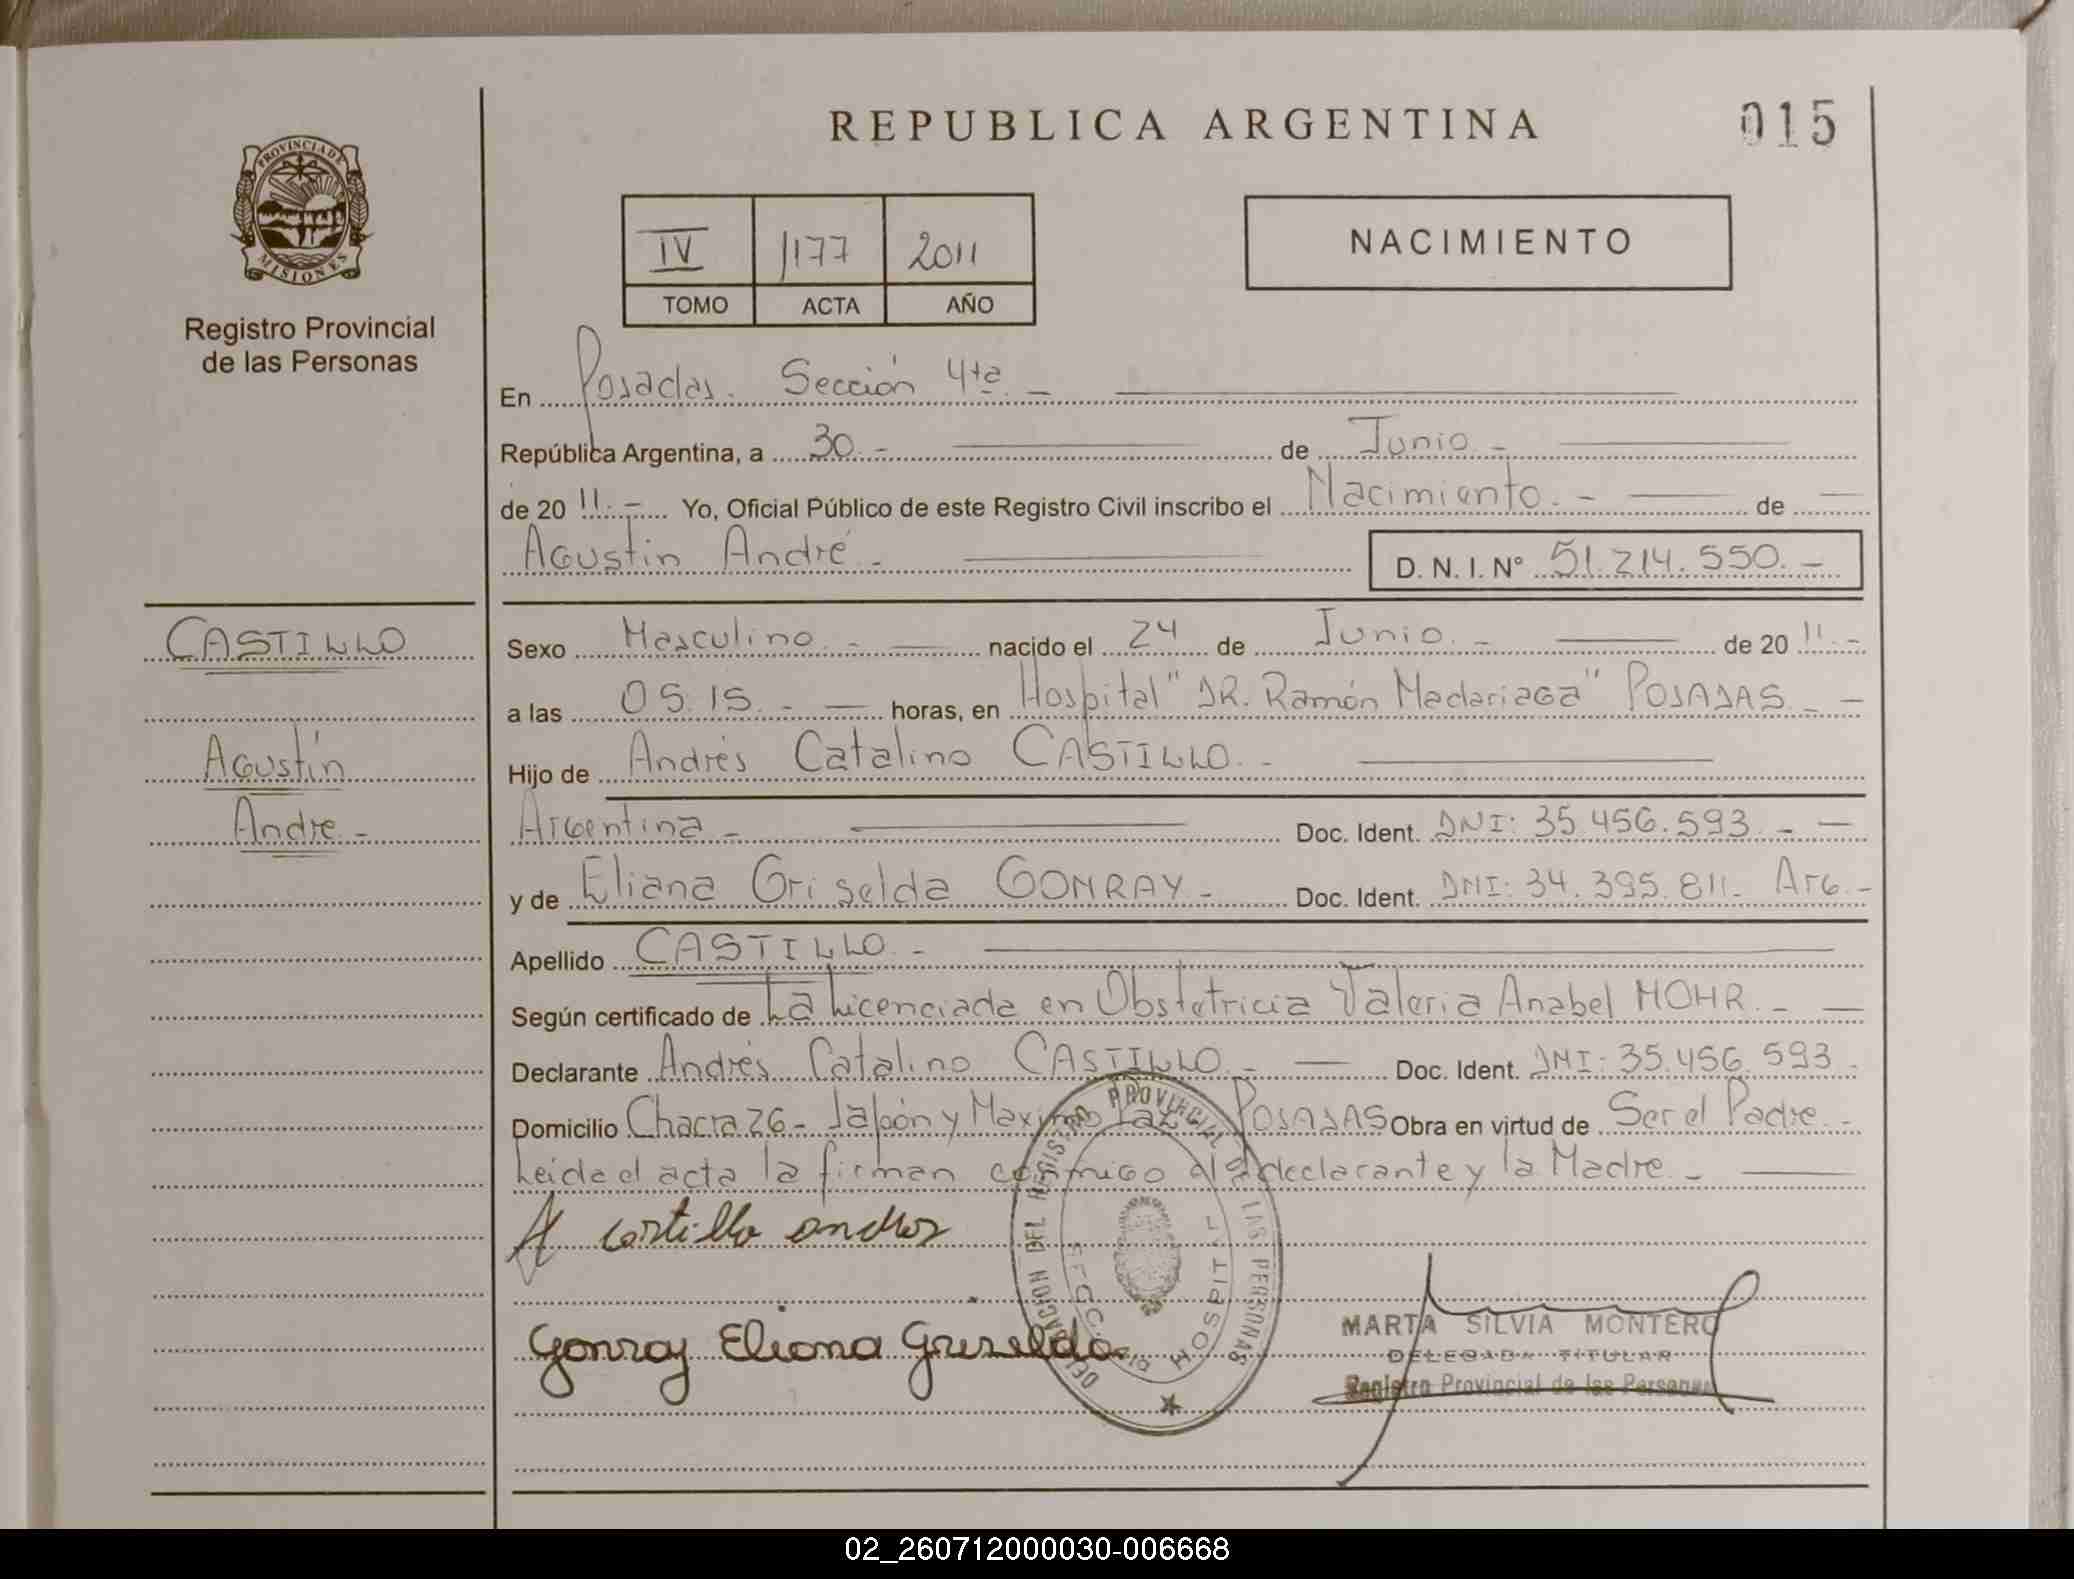 REPUBLICA ARGENTINA
015
PROVINCIA DE
MISIONES
Registro Provincial
de las Personas
IV 1177 2011
TOMO ACTA AÑO
NACIMIENTO
En Posadas. Sección 4ta. -
República Argentina, a 30. - de Junio -
de 20 11. - Yo, Oficial Público de este Registro Civil inscribo el Nacimiento. - de
Agustin André - D. N. I. N° 51.214.550. -
CASTILLO
Agustín
Andre -
Sexo Masculino. - nacido el 24 de Junio. - de 20 11. -
a las 05:15. - horas, en Hospital "DR. Ramón Madariaga" POSADAS. -
Hijo de Andrés Catalino CASTILLO. -
Argentina - Doc. Ident. DNI: 35.456.593. -
y de Eliana Griselda GONRAY - Doc. Ident. DNI: 34.395.811- Arg. -
Apellido CASTILLO. -
Según certificado de La Licenciada en Obstetricia Valeria Anabel MOHR. -
Declarante Andrés Catalino CASTILLO. - Doc. Ident. DNI: 35.456.593 -
Domicilio Chacra 26- Japón y Maximo Paz POSADAS Obra en virtud de Ser el Padre. -
Leida el acta la firman conmigo el declarante y la Madre. -
A castillo andres
Gonray Eliana Griselda
DELEGACION DEL REGISTRO PROVINCIAL DE LAS PERSONAS
SECC. 4ta HOSPITAL
MARTA SILVIA MONTERO
DELEGADA TITULAR
Registro Provincial de las Personas
02_260712000030-006668